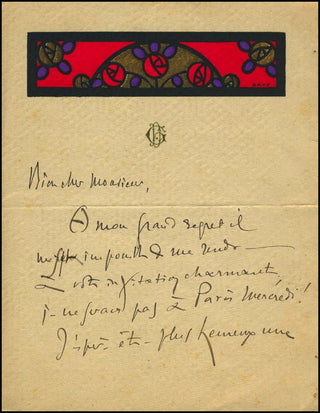 Bien cher Monsieur,
A mon grand regret il
m'est impossible de me rendre
à votre invitation charmante,
je ne serai pas à Paris Mercredi!
J'espère être plus heureux une